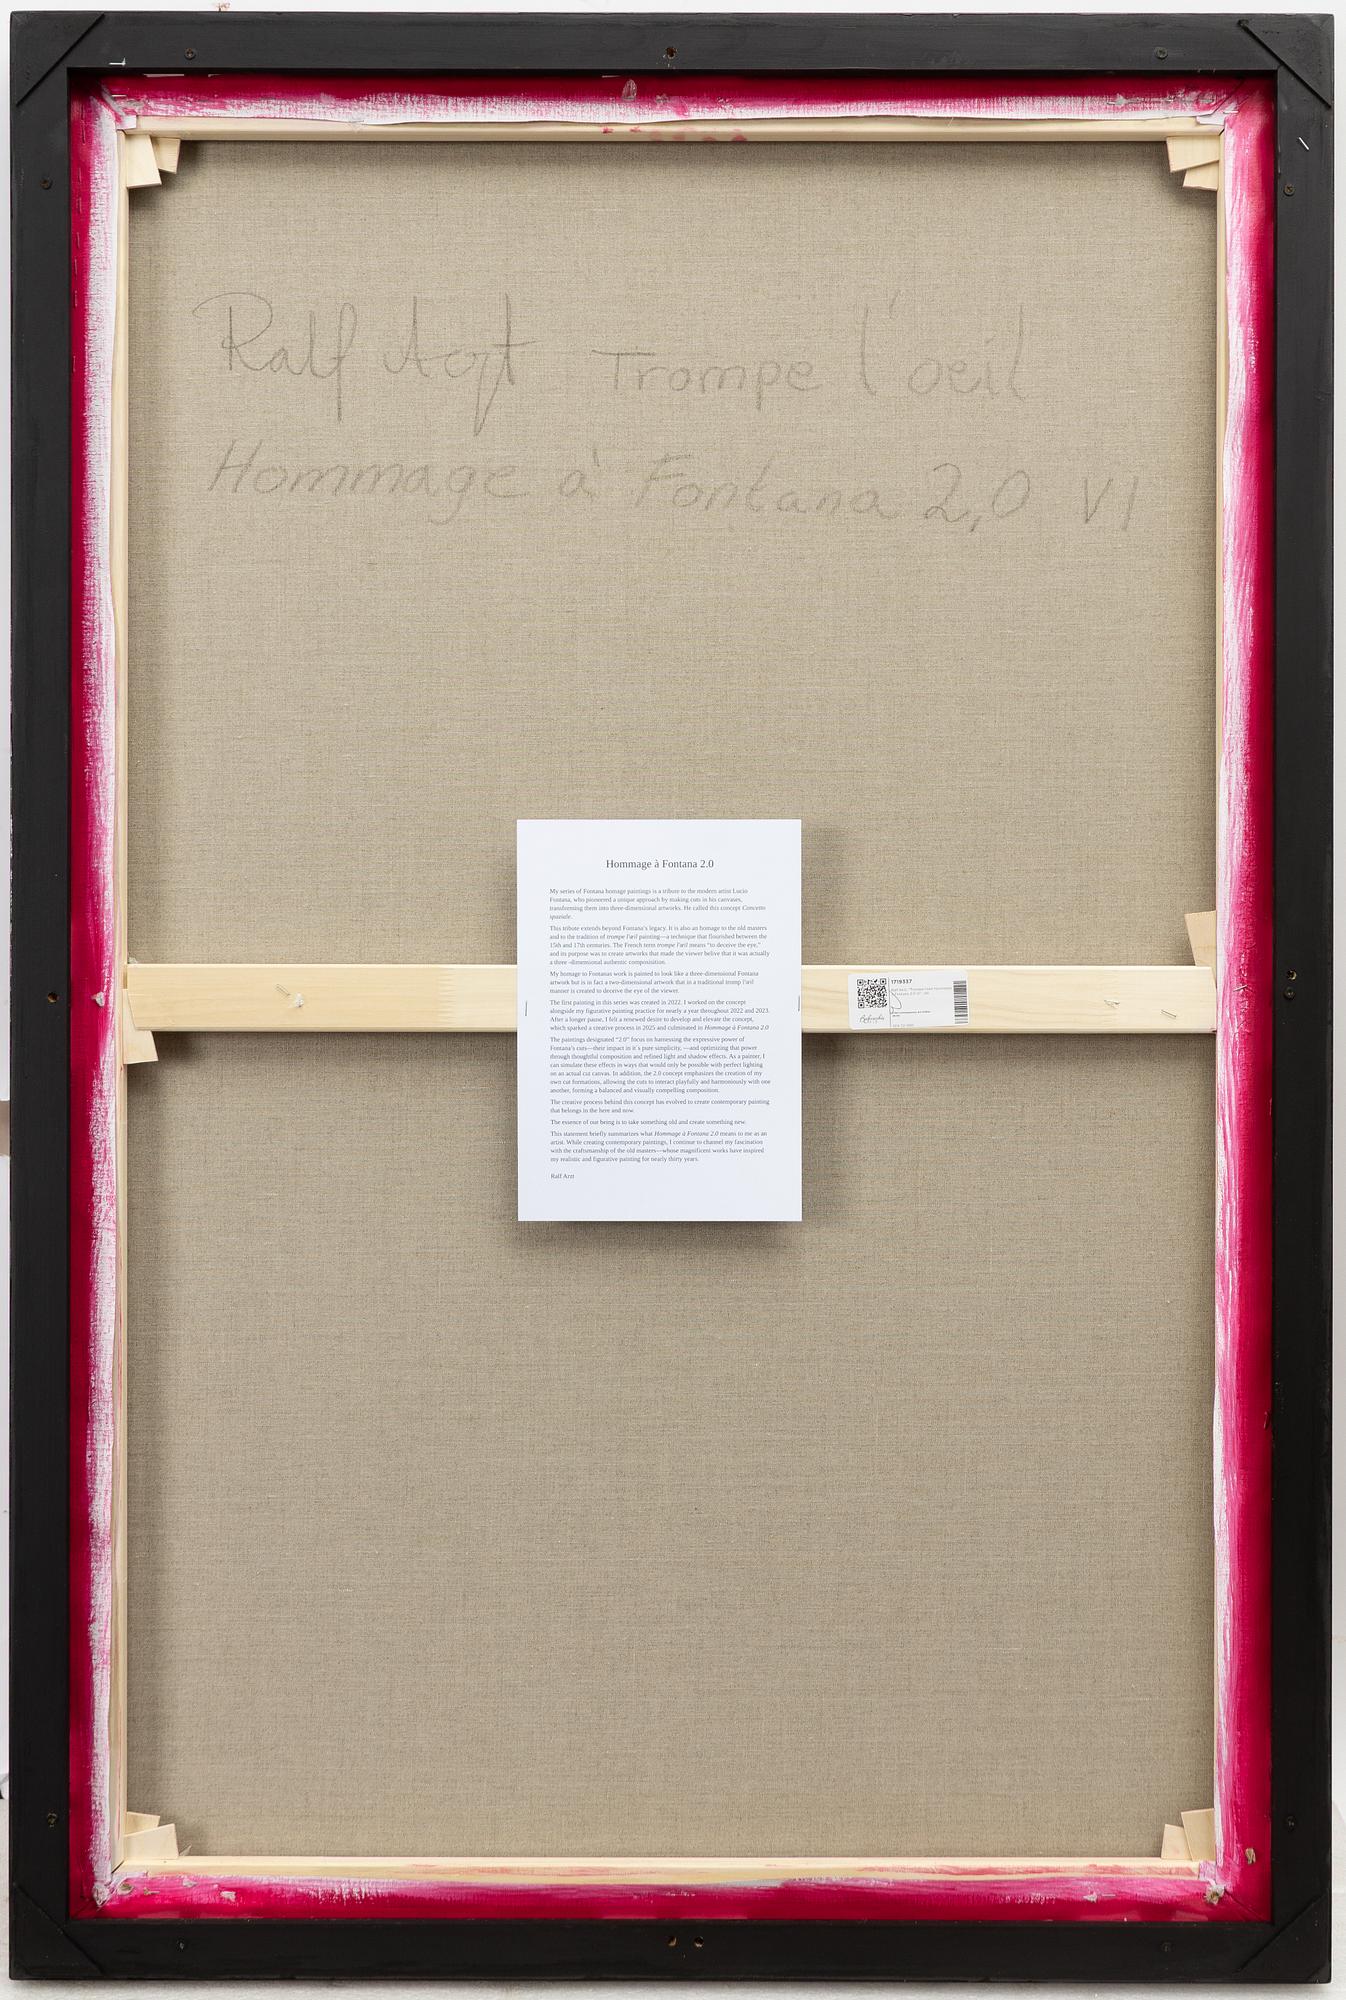 Ralf Arzt Trompe l'oeil
Hommage à Fontana 2,0 VI
Hommage à Fontana 2.0
My series of Fontana homage paintings is a tribute to the modern artist Lucio
Fontana, who pioneered a unique approach by making cuts in his canvases,
transforming them into three-dimensional artworks. He called this concept Concetto
spaziale.
This tribute extends beyond Fontana's legacy. It is also an homage to the old masters
and to the tradition of trompe l'œil painting—a technique that flourished between the
15th and 17th centuries. The French term trompe l'œil means "to deceive the eye,"
and its purpose was to create artworks that made the viewer belive that it was actually
a three -dimensional authentic composisition.
My homage to Fontanas work is painted to look like a three-dimensional Fontana
artwork but is in fact a two-dimensional artwork that in a traditional tromp l'œil
manner is created to deceive the eye of the viewer.
The first painting in this series was created in 2022. I worked on the concept
alongside my figurative painting practice for nearly a year throughout 2022 and 2023.
After a longer pause, I felt a renewed desire to develop and elevate the concept,
which sparked a creative process in 2025 and culminated in Hommage à Fontana 2.0
The paintings designated "2.0" focus on harnessing the expressive power of
Fontana's cuts—their impact in it´s pure simplicity, —and optimizing that power
through thoughtful composition and refined light and shadow effects. As a painter, I
can simulate these effects in ways that would only be possible with perfect lighting
on an actual cut canvas. In addition, the 2.0 concept emphasizes the creation of my
own cut formations, allowing the cuts to interact playfully and harmoniously with one
another, forming a balanced and visually compelling composition.
The creative process behind this concept has evolved to create contemporary painting
that belongs in the here and now.
The essence of our being is to take something old and create something new.
This statement briefly summarizes what Hommage à Fontana 2.0 means to me as an
artist. While creating contemporary paintings, I continue to channel my fascination
with the craftsmanship of the old masters—whose magnificent works have inspired
my realistic and figurative painting for nearly thirty years.
Ralf Arzt
1719337